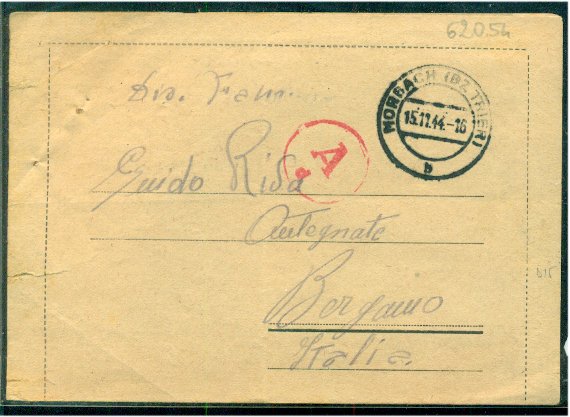 62054
MORBACH (BZ. TRIER)
15.11.44.-16
b
A
Guido Riva
Antegnate
Bergamo
Italia.